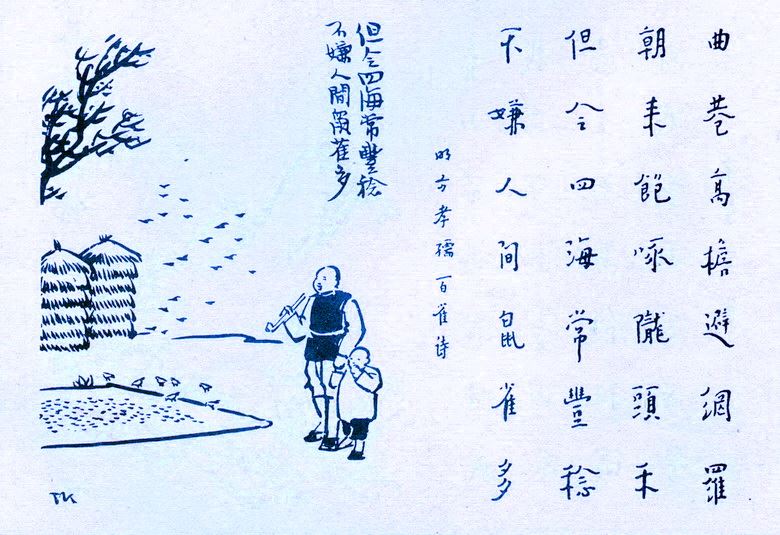 曲巷高檐避網羅
朝来飽啄隴頭禾
但令四海常豐稔
不嫌人間鼠雀多
明方孝孺百雀诗
但令四海常豐稔
不嫌人間鼠雀多
TK